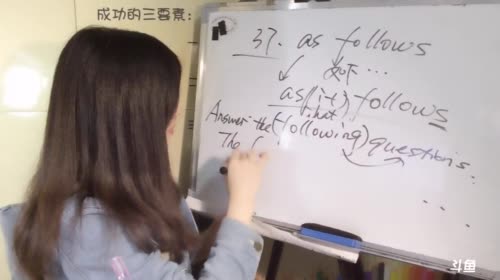 成功的三要素:
37. as follows
如下...
as (it) follows
that
Answer the (following) questions.
The (
...
斗鱼